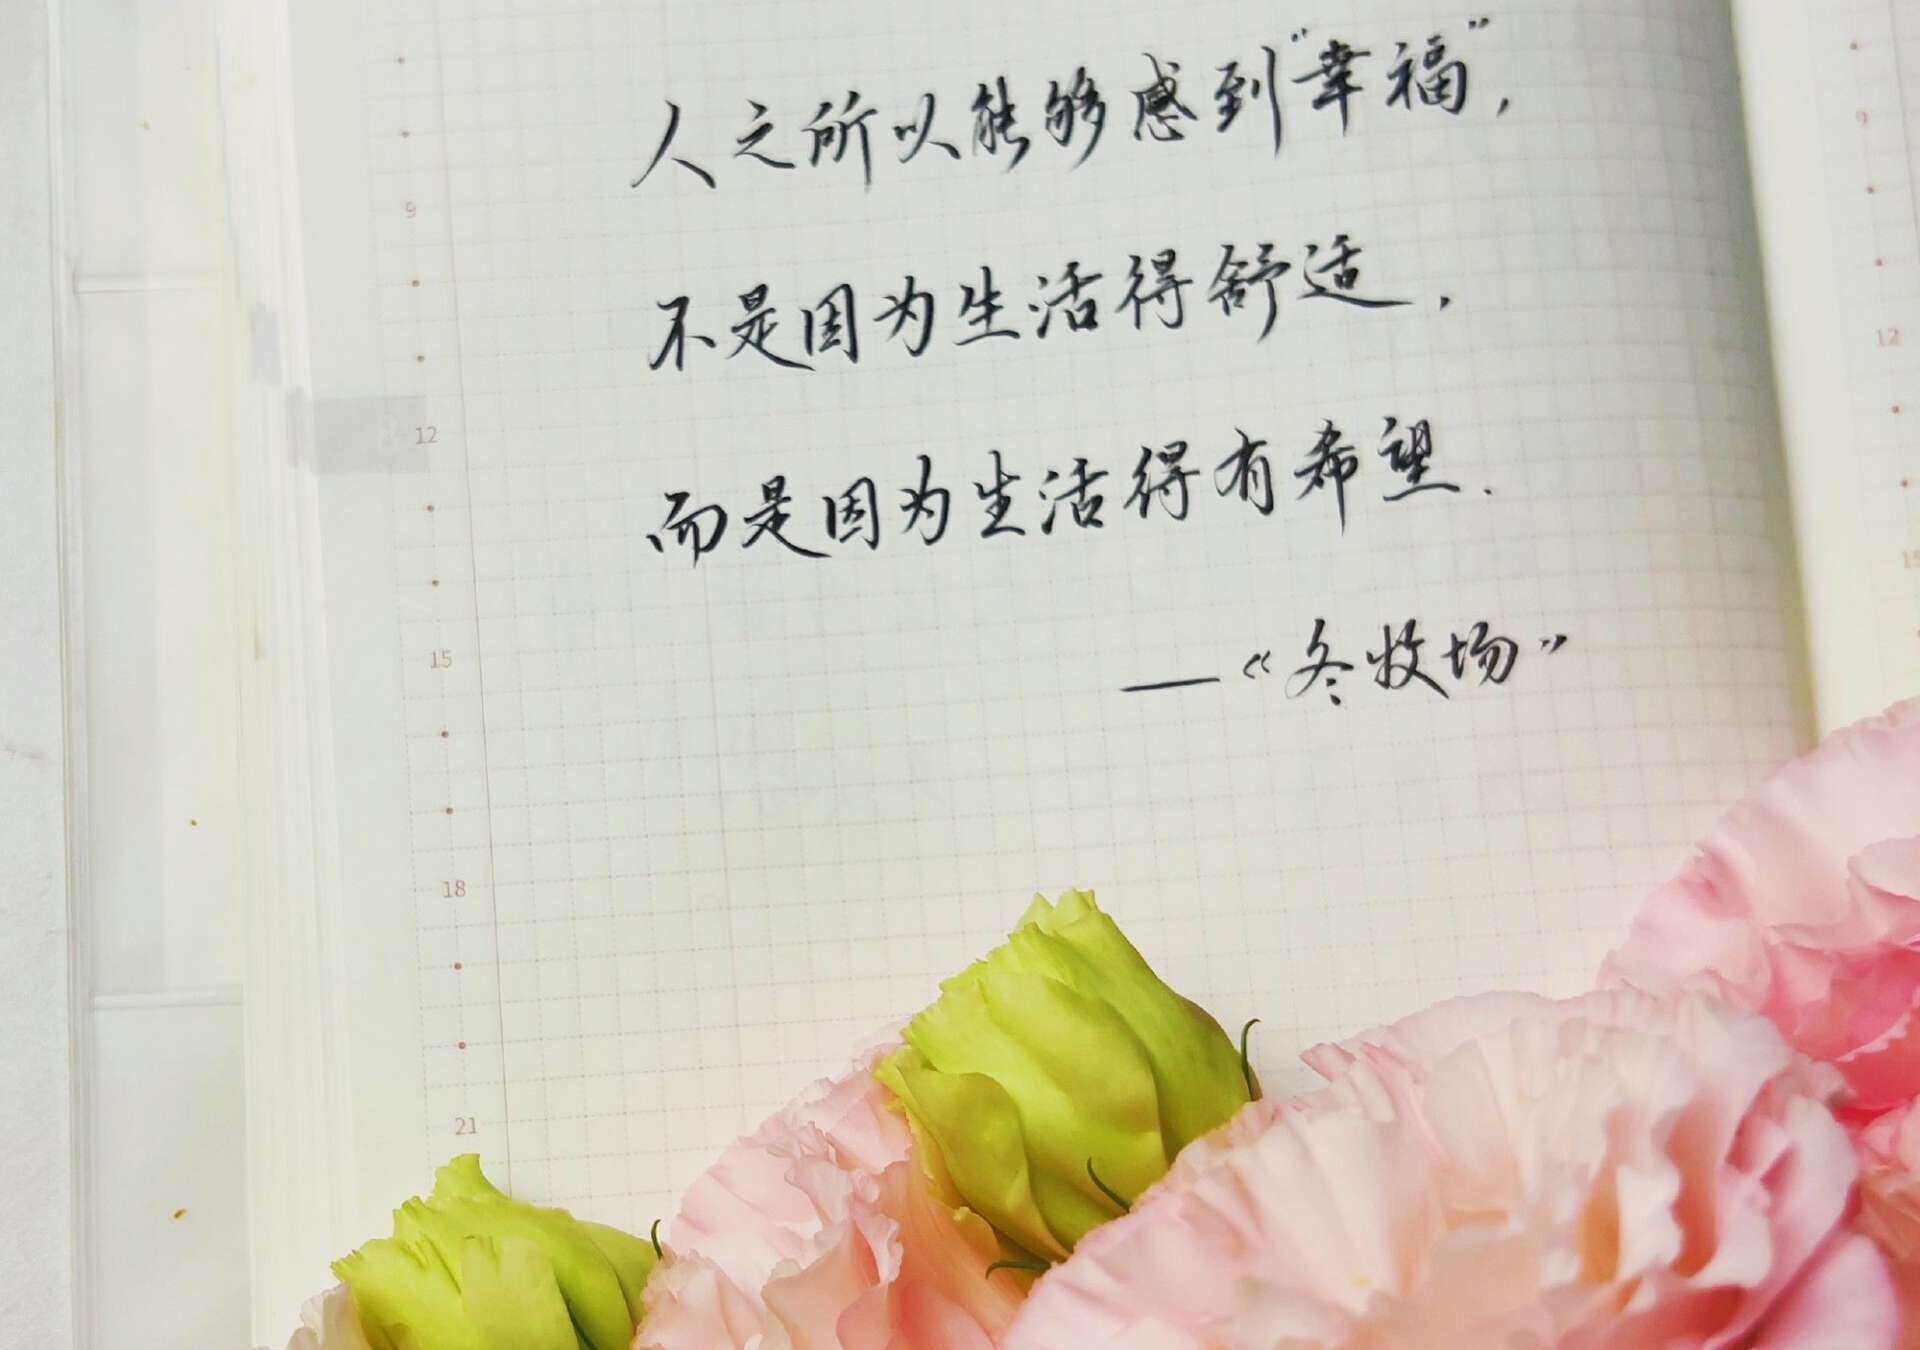 人之所以能够感到“幸福”，
不是因为生活得舒适，
而是因为生活得有希望.
—《冬牧场》
9
12
15
18
21
9
12
15